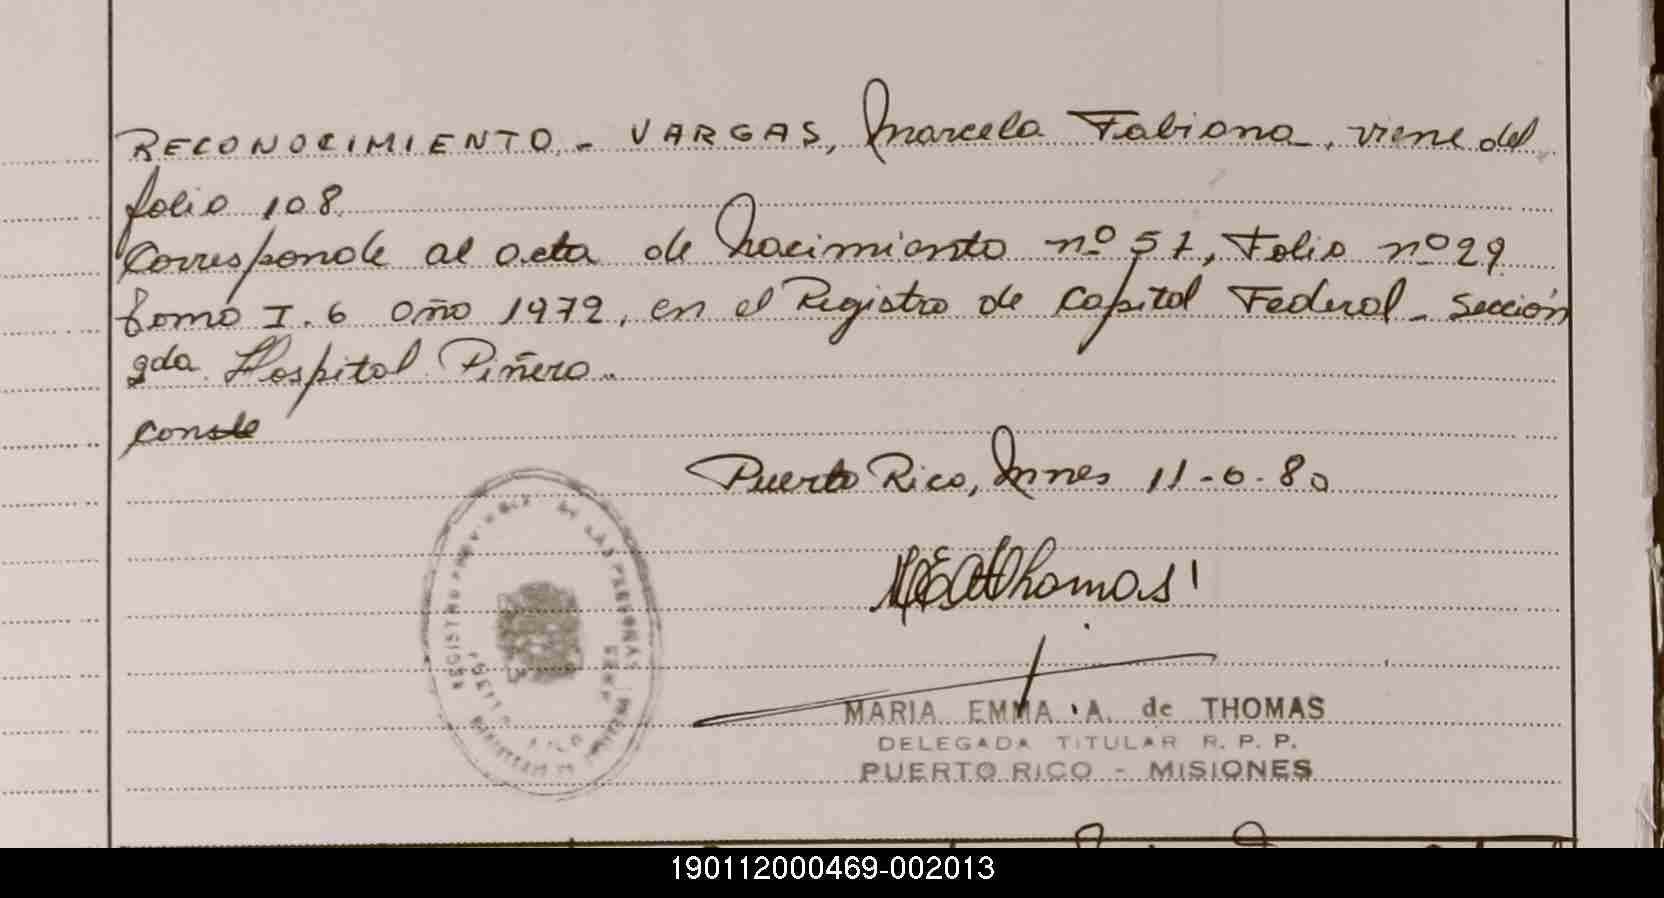 RECONOCIMIENTO - VARGAS, Marcela Fabiana, viene del
folio 108
Corresponde al acta de Nacimiento nº 57, Folio nº 29
tomo I. 6 año 1972, en el Registro de Capital Federal - Sección
2da Hospital Piñero.
Conste
Puerto Rico, Mnes 11-6-80
M E A de Thomas
REGISTRO PROVINCIAL DE LAS PERSONAS
MARIA EMMA A. de THOMAS
DELEGADA TITULAR R. P. P.
PUERTO RICO - MISIONES
190112000469-002013